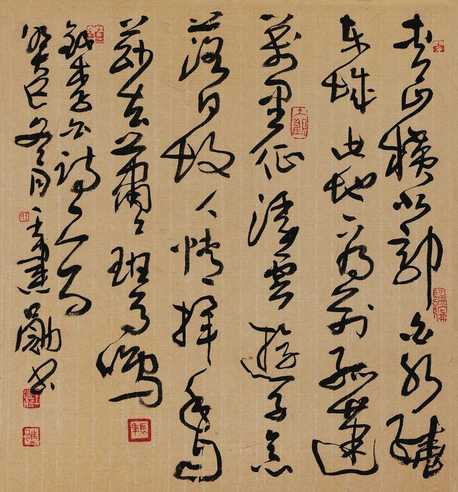 青山横北郭白水绕
东城此地一为别孤蓬
萬里征浮雲遊子意
落日故人情挥手自
兹去萧々班马鸣
录李白诗一首
癸巳冬月 建勋书